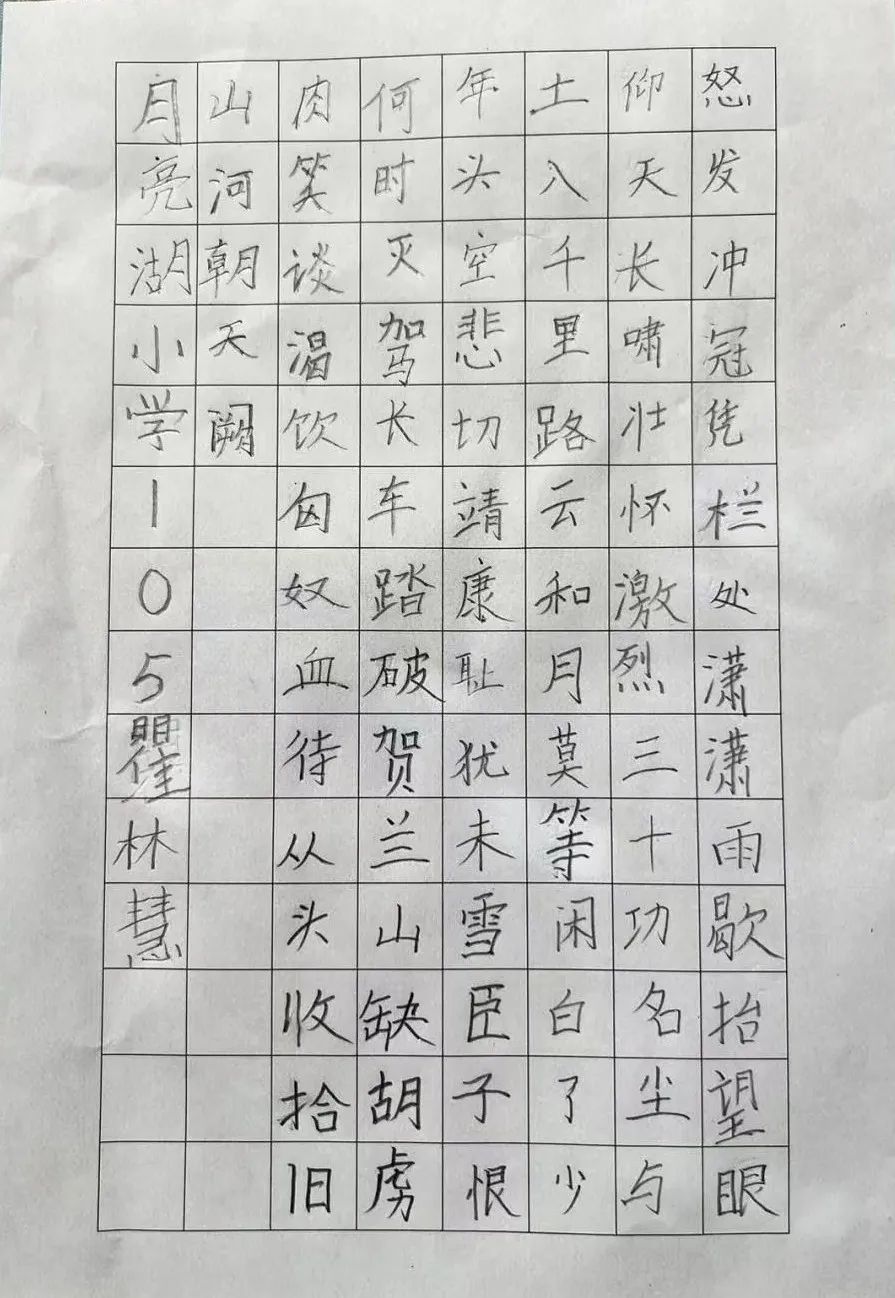 怒发冲冠凭栏处潇潇雨歇抬望眼
仰天长啸壮怀激烈三十功名尘与
土八千里路云和月莫等闲白了少
年头空悲切靖康耻犹未雪臣子恨
何时灭驾长车踏破贺兰山缺胡虏
肉笑谈渴饮匈奴血待从头收拾旧
山河朝天阙
月亮湖小学105瞿林慧